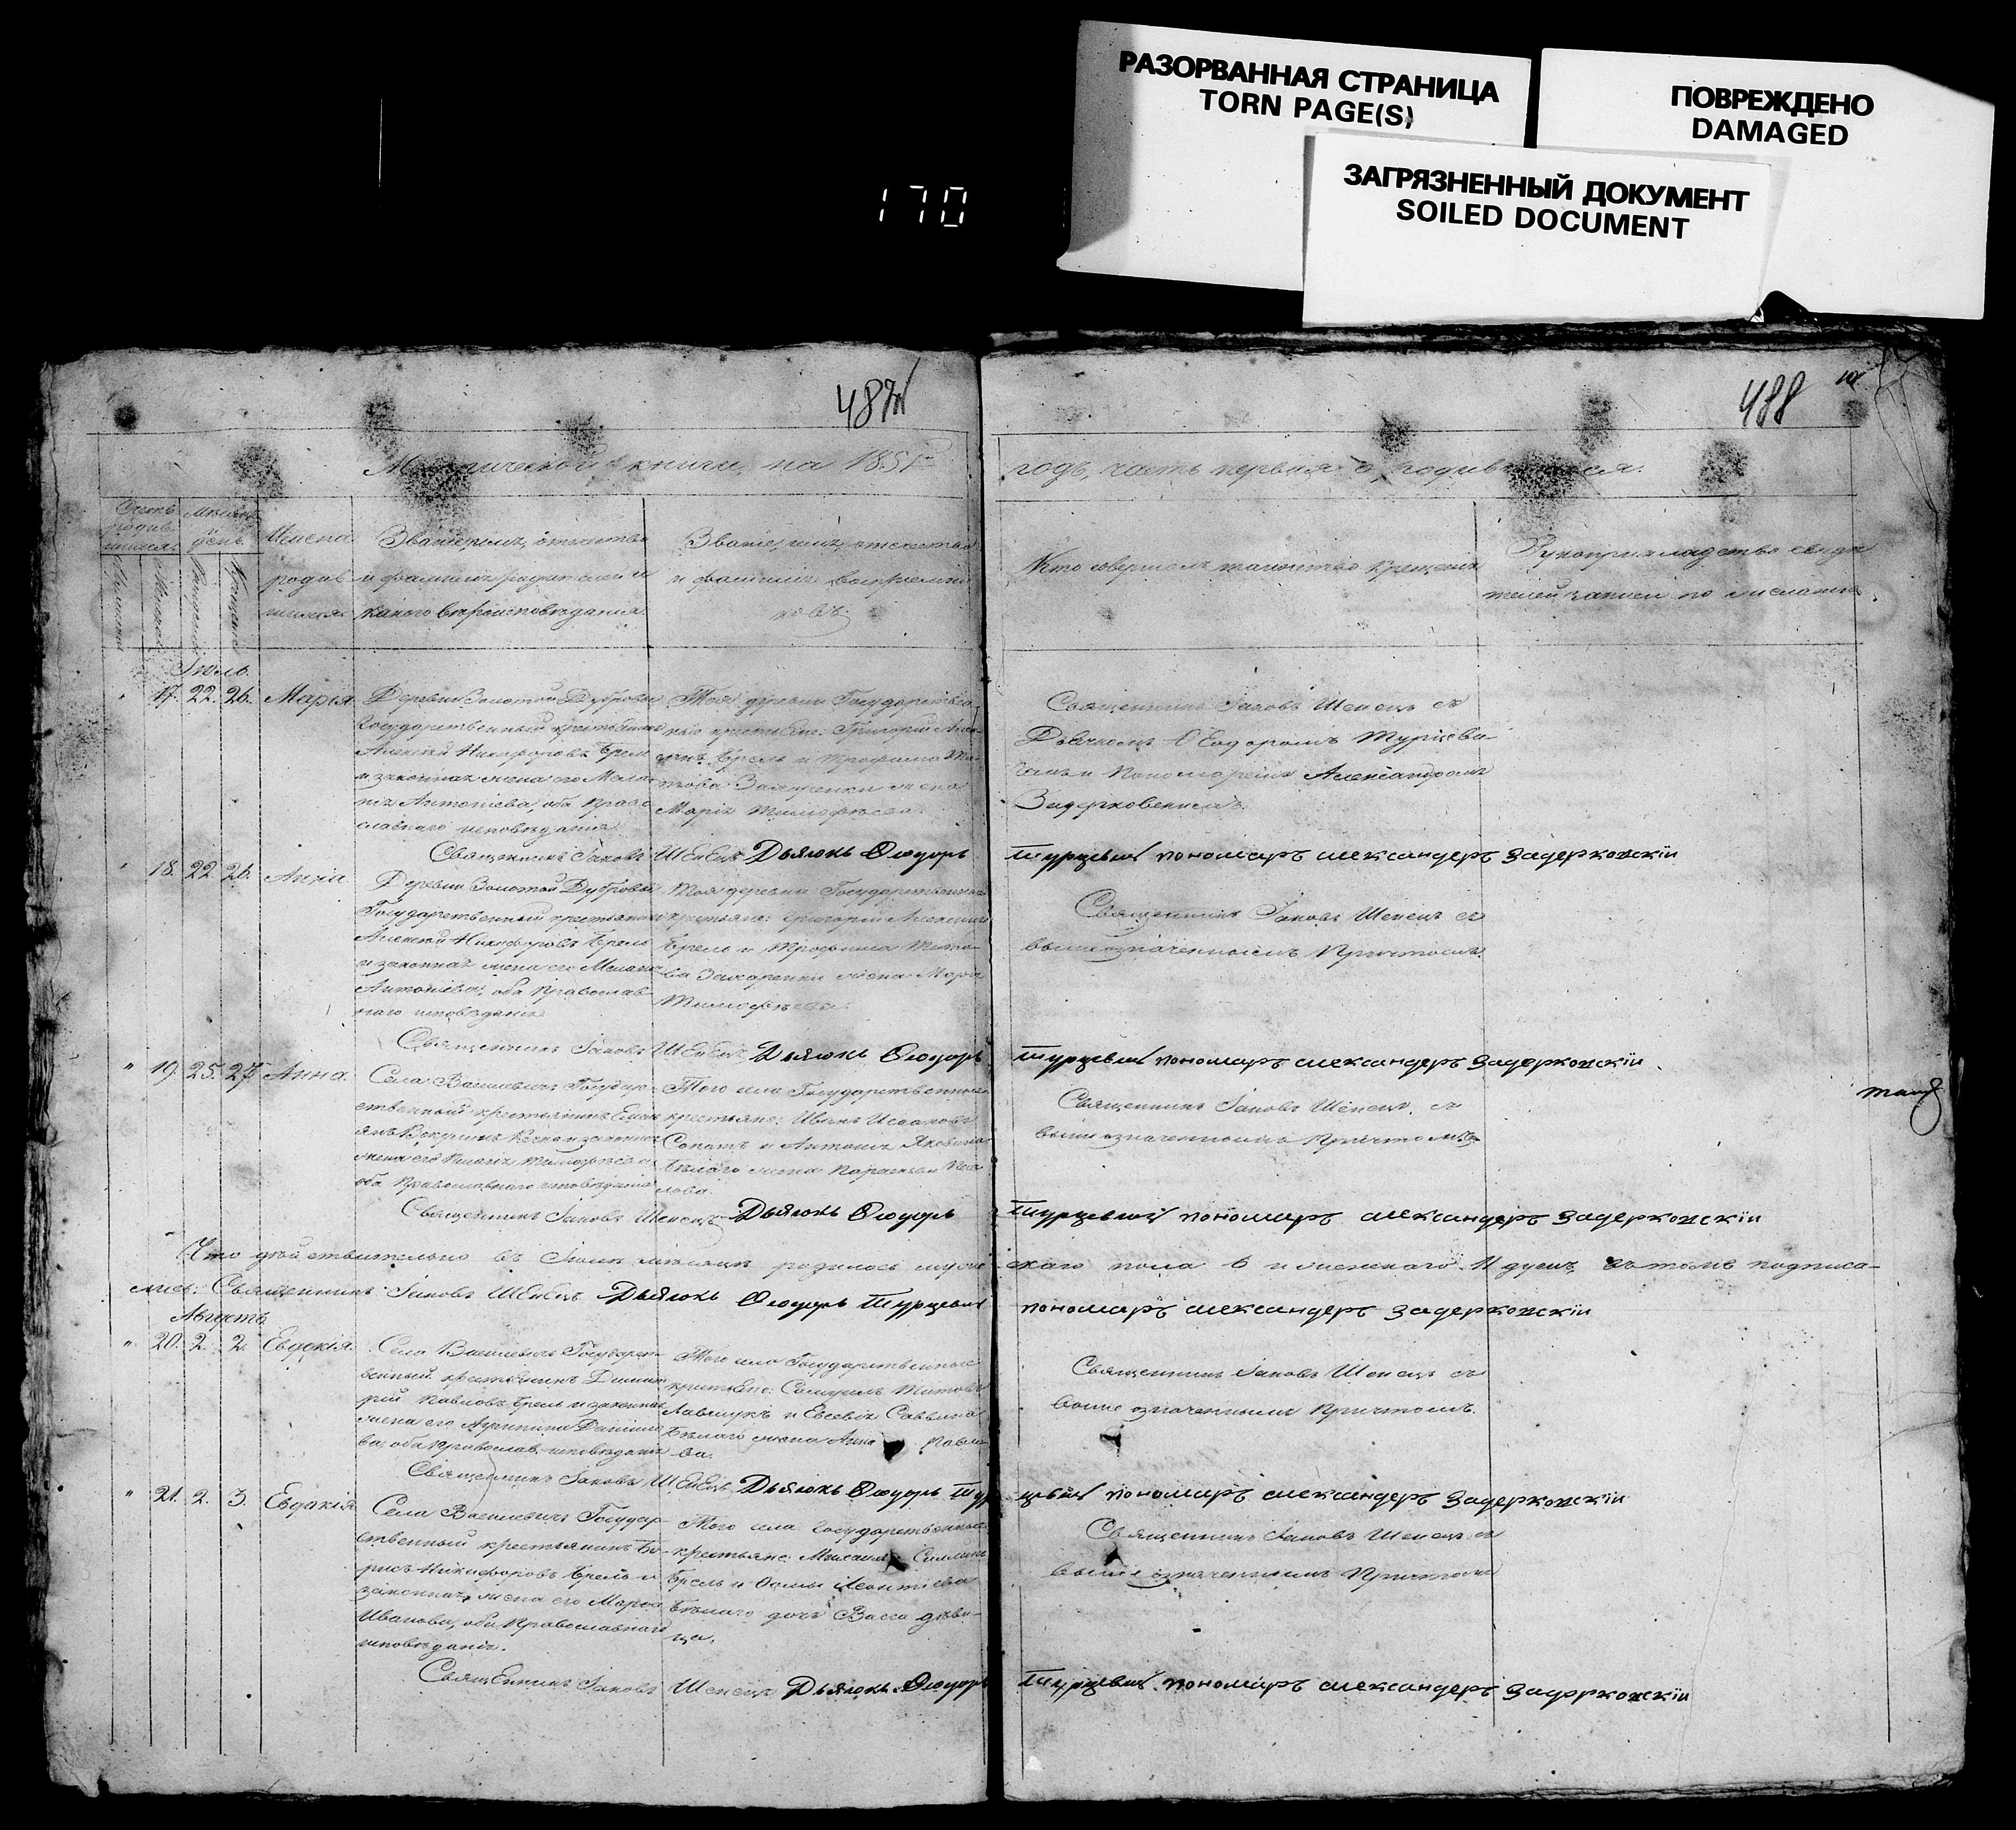 РАЗОРВАННАЯ СТРАНИЦА
TORN PAGE(S)
ПОВРЕЖДЕНО
DAMAGED
ЗАГРЯЗНЕННЫЙ ДОКУМЕНТ
SOILED DOCUMENT
170
487
488
книги, на 1851
годъ, часть первая о родив
Имена
родив-
шихся.
Званіе, имя, отчество
и фамилія родителей и
какого вѣроисповѣданія
Званіе, имя, отчество
и фамилія воспреемни-
ковъ.
Кто совершалъ таинство крещенія
Рукоприкладство свидѣ-
телей записи по желанію
Іюль.
17. 22. 26. Марія
Деревни Золотой Дубровы
Государственный крестьянинъ
Алексѣй Никифоровъ Брель
и законная жена его Мела-
нія Антоніева, оба Право-
славнаго исповѣданія
Той деревни Государствен-
крестьяне: Григорій
Брель и Трофима
Захаренки жена
Марія Тимофѣева.
Священникъ Іаковъ Шепецъ съ
Дьячкомъ Ѳеодоромъ Турцеви-
чемъ и Пономаремъ Александромъ
Задерковскимъ.
Священникъ Іаковъ Шепецъ Дьячокъ Ѳеодоръ Турцевич пономаръ александеръ Задерковскій
18. 22. 26. Анна
Деревни Золотой Дубровы
Государственный крестьянинъ
Алексѣй Никифоровъ Брель
и законная жена его Меланія
Антоніева, оба Православ-
наго исповѣданія
Той деревни Государственные
крестьяне: Григорій
Брель и Трофима Тито-
ва Захаренки жена Марія
Тимофѣева.
Священникъ Іаковъ Шепецъ съ
вышеозначеннымъ Причтомъ.
Священникъ Іаковъ Шепецъ Дьячокъ Ѳеодоръ Турцевич пономаръ александеръ Задерковскій
19. 25. 27. Анна.
Села Василевичъ Государ-
ственный крестьянинъ
и законная
жена его Тимофѣева
оба Православнаго исповѣданія
Того села Государственные
крестьяне: Иванъ Исааковъ
и Антона
Бѣлаго жена Параскева Пав-
лова.
Священникъ Іаковъ Шепецъ съ
вышеозначеннымъ Причтомъ
Священникъ Іаковъ Шепецъ Дьячокъ Ѳеодоръ Турцевич пономаръ александеръ Задерковскій
Что дѣйствительно въ Іюлѣ мѣсяцѣ родилось муже-скаго пола 6 и женскаго 11 душъ, въ томъ подписа-
лись: Священникъ Іаковъ Шепецъ Дьячокъ Ѳеодоръ Турцевич пономаръ александеръ Задерковскій
Августъ.
20. 2. 2. Евдокія.
Села Василевичъ Государст-
венный крестьянинъ Дмит-
рій Павловъ Брель и законная
жена его Агрипина Даніило-
ва, оба Православ. исповѣданія
Того села Государственные
крестьяне: Самуилъ Титовъ
Лавницкъ и Евсевія Саввина
Бѣлаго жена Анна Павло-
ва.
Священникъ Іаковъ Шепецъ съ
вышеозначеннымъ Причтомъ.
Священникъ Іаковъ Шепецъ Дьячокъ Ѳеодоръ Турцевич пономаръ александеръ Задерковскій
21. 2. 3. Евдокія
Села Василевичъ Государ-
ственный крестьянинъ Бо-
рисъ Никифоровъ Брель и
законная жена его Марѳа
Иванова, оба Православнаго
исповѣданія.
Того села Государственные
крестьяне: Михаилъ
Брель и Ѳомы Леонтіева
Бѣлаго дочь Васса дѣви-
ца.
Священникъ Іаковъ Шепецъ съ
вышеозначеннымъ Причтомъ
Священникъ Іаковъ Шепецъ Дьячокъ Ѳеодоръ Турцевич пономаръ александеръ Задерковскій